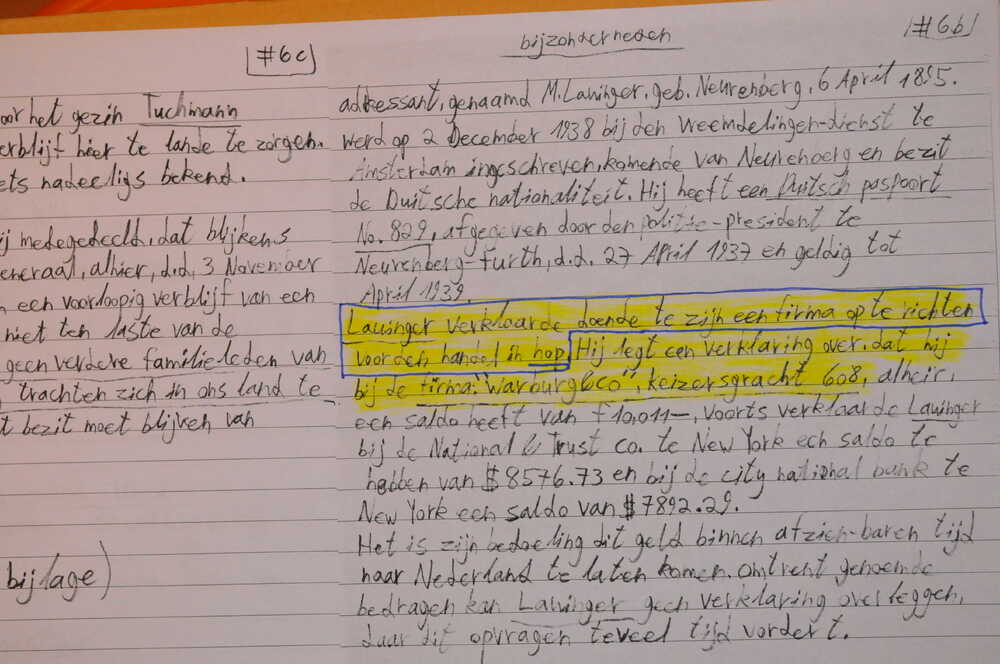 #6c
oor het gezin Tuchmann
erblijf hier te lande te zorgen.
ets nadeeligs bekend.
ij medegedeeld, dat blijkens
eneraal, alhier, d.d. 3 November
n een voorloopig verblijf van een
niet ten laste van de
geen verdere familieleden van
trachten zich in ons land te
t bezit moet blijven van
bijlage)
#6b
bijzonderheden
adressant, genaamd M. Lauinger, geb. Neurenberg, 6 April 1895.
werd op 2 December 1938 bij den vreemdelingen-dienst te
Amsterdam ingeschreven, komende van Neurenberg en bezit
de Duitsche nationaliteit. Hij heeft een Duitsch paspoort
No. 829, afgegeven door den politie-president te
Neurenberg-Furth, d.d. 27 April 1937 en geldig tot
April 1939.
Lauinger verklaarde doende te zijn een firma op te richten
voor den handel in hop. Hij legt een verklaring over, dat hij
bij de firma: "Warburg & co", keizersgracht 608, alhier,
een saldo heeft van f 10,011-, voorts verklaarde Lauinger
bij de National & Trust co. te New York een saldo te
hebben van $8576.73 en bij de city national bank te
New York een saldo van $7892.29.
Het is zijn bedoeling dit geld binnen afzien-baren tijd
naar Nederland te laten komen. omtrent genoemde
bedragen kan Lauinger geen verklaring overleggen,
daar dit opvragen teveel tijd vordert.